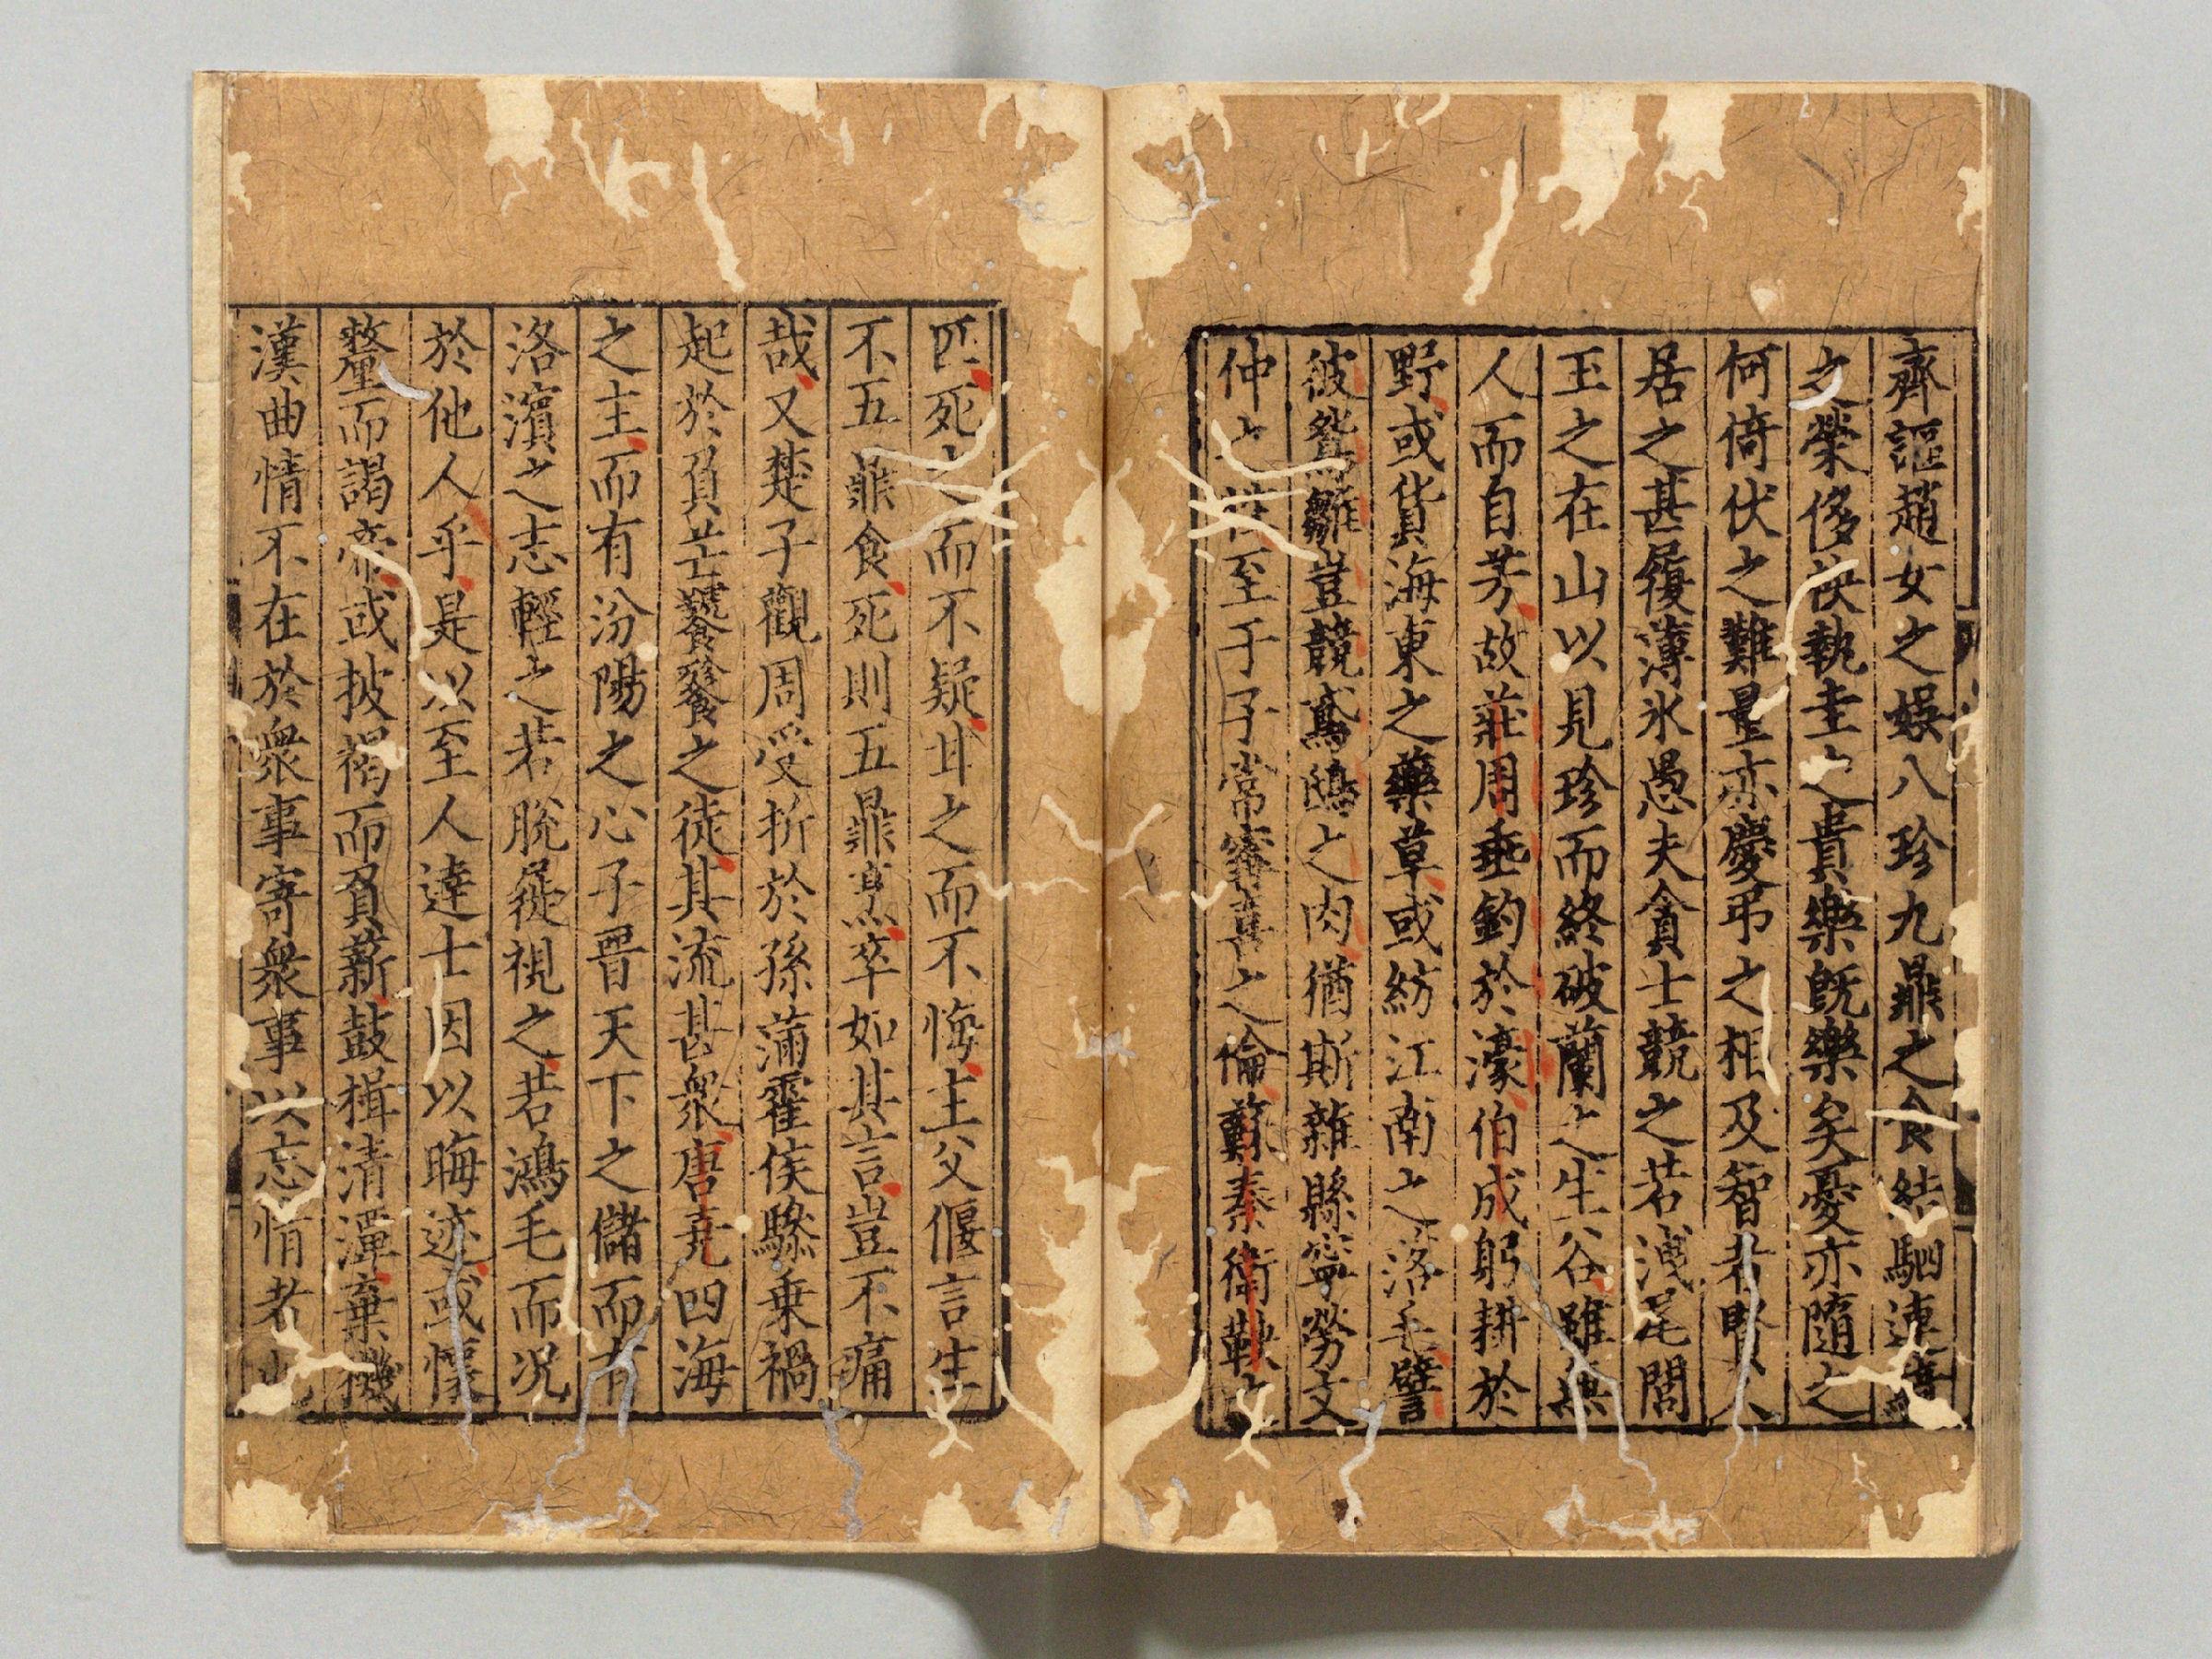 齊謳趙女之娛八珍九鼎之食結駟連鑣
之榮侈袂執圭之貴樂旣樂矣憂亦隨之
何倚伏之難量亦慶弔之相及智者賢人
居之甚履薄氷愚夫貪士競之若洩尾閭
玉之在山以見珍而終破蘭之生谷雖無
人而自芳故莊周垂釣於濠伯成躬耕於
野或貨海東之藥草或紡江南之落毛譬
彼鴛鶵豈競鳶鴟之肉猶斯雜縣寧勞文
仲之牲至于子常審喜之倫蘇秦衛鞅之
匹死之而不疑甘之而不悔主父偃言生
不五鼎食死則五鼎烹卒如其言豈不痛
哉又楚子觀周受折於孫滿霍侯驂乗禍
起於負芒饕餮之徒其流甚衆唐堯四海
之主而有汾陽之心子晉天下之儲而有
洛濱之志輕之若脫屣視之若鴻毛而况
於他人乎是以至人達士因以晦迹或懷
釐而謁帝或披褐而負薪鼓楫清潭棄機
漢曲情不在於衆事寄衆事以忘情者也